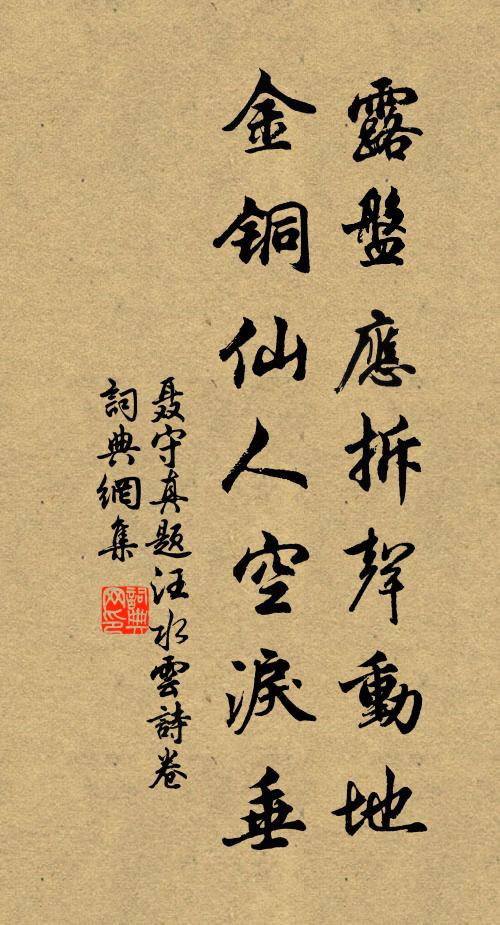 露盤應拆聲動地
金铜仙人空淚垂
聂守真题汪水雲詩卷
詞典網集
詞典网印